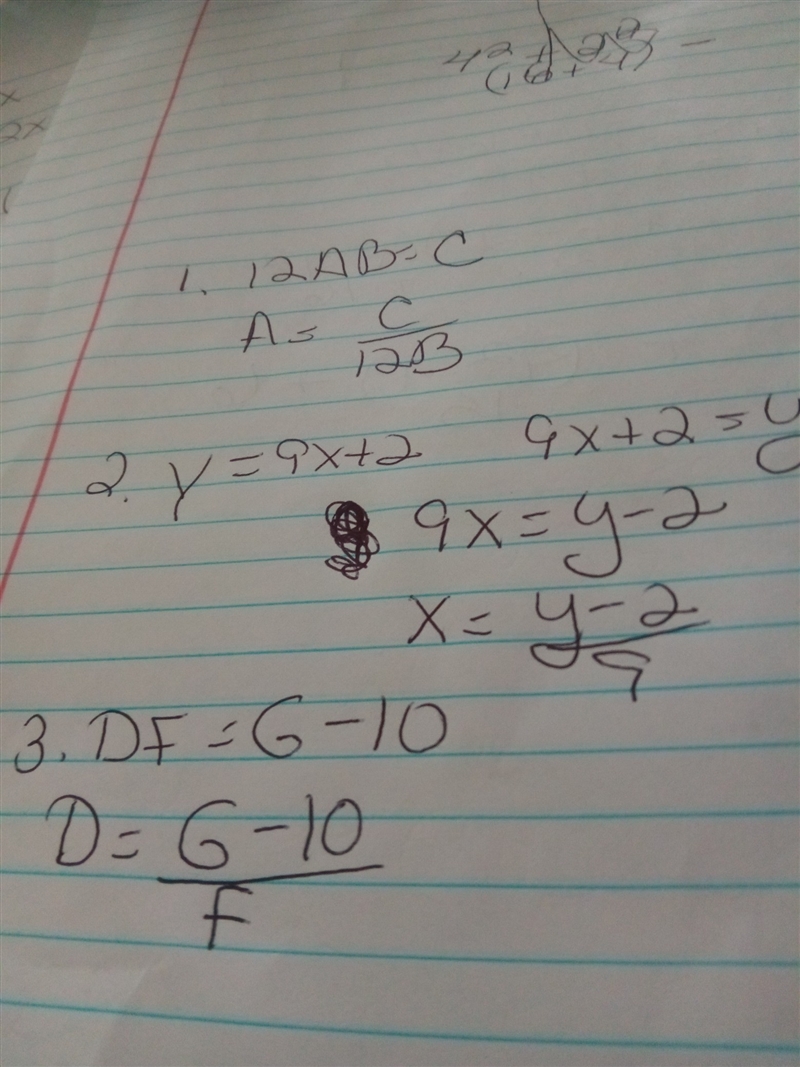 x
2x
1. 12AB=C
A= C/12B
2. y=9x+2
9x+2=y
9x=y-2
x= y-2/9
3. DF=G-10
D= G-10/F